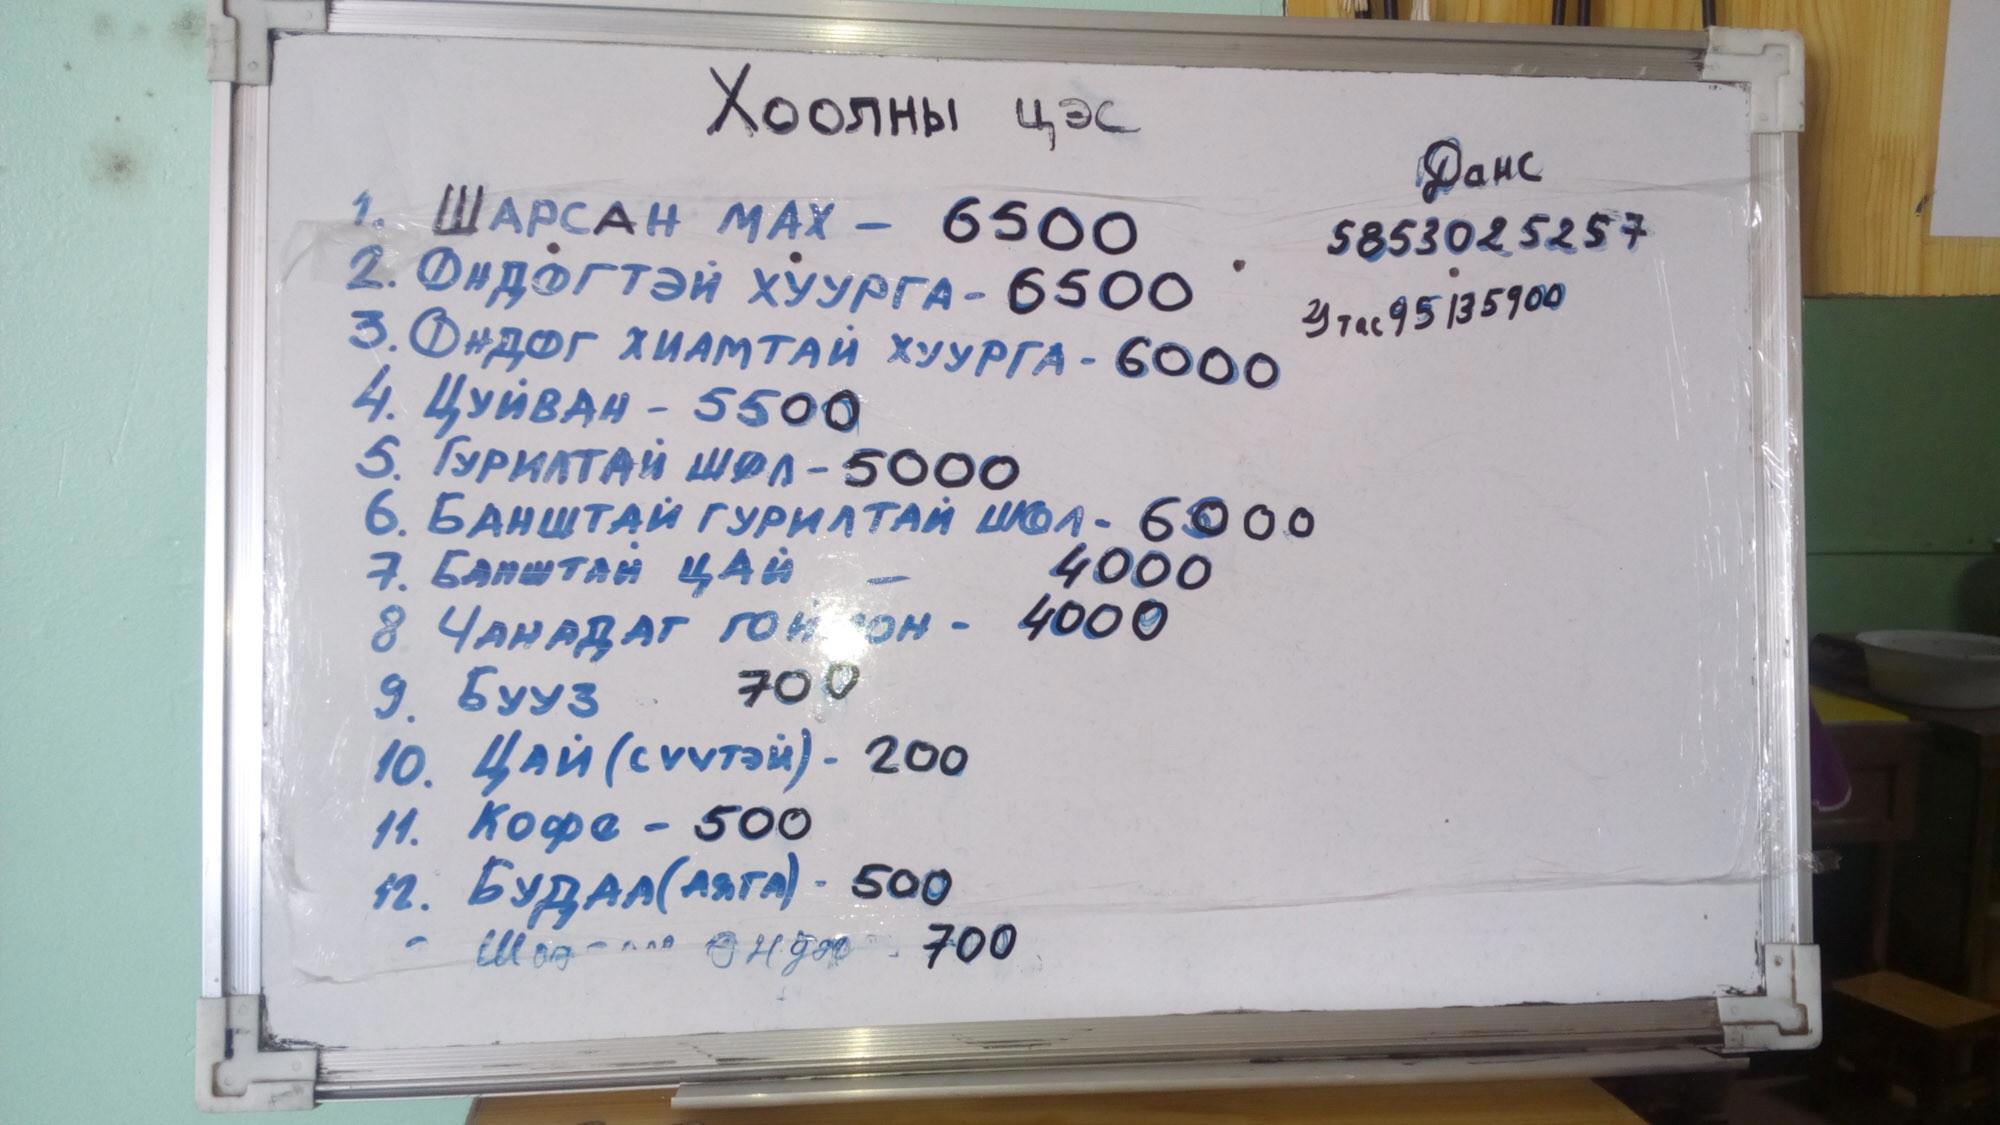 Хоолны цэс
Данс
5853025257
Утас 95135900
1. ШАРСАН МАХ – 6500
2. ӨНДӨГТЭЙ ХУУРГА - 6500
3. ӨНДӨГ ХИАМТАЙ ХУУРГА - 6000
4. ЦУЙВАН - 5500
5. ГУРИЛТАЙ ШӨЛ - 5000
6. БАНШТАЙ ГУРИЛТАЙ ШӨЛ - 6000
7. БАНШТАЙ ЦАЙ – 4000
8 ЧАНАДАГ - 4000
9. БУУЗ 700
10. ЦАЙ (СҮҮТЭЙ) - 200
11. КОФЕ - 500
12. БУДАА (АЯГА) - 500
700